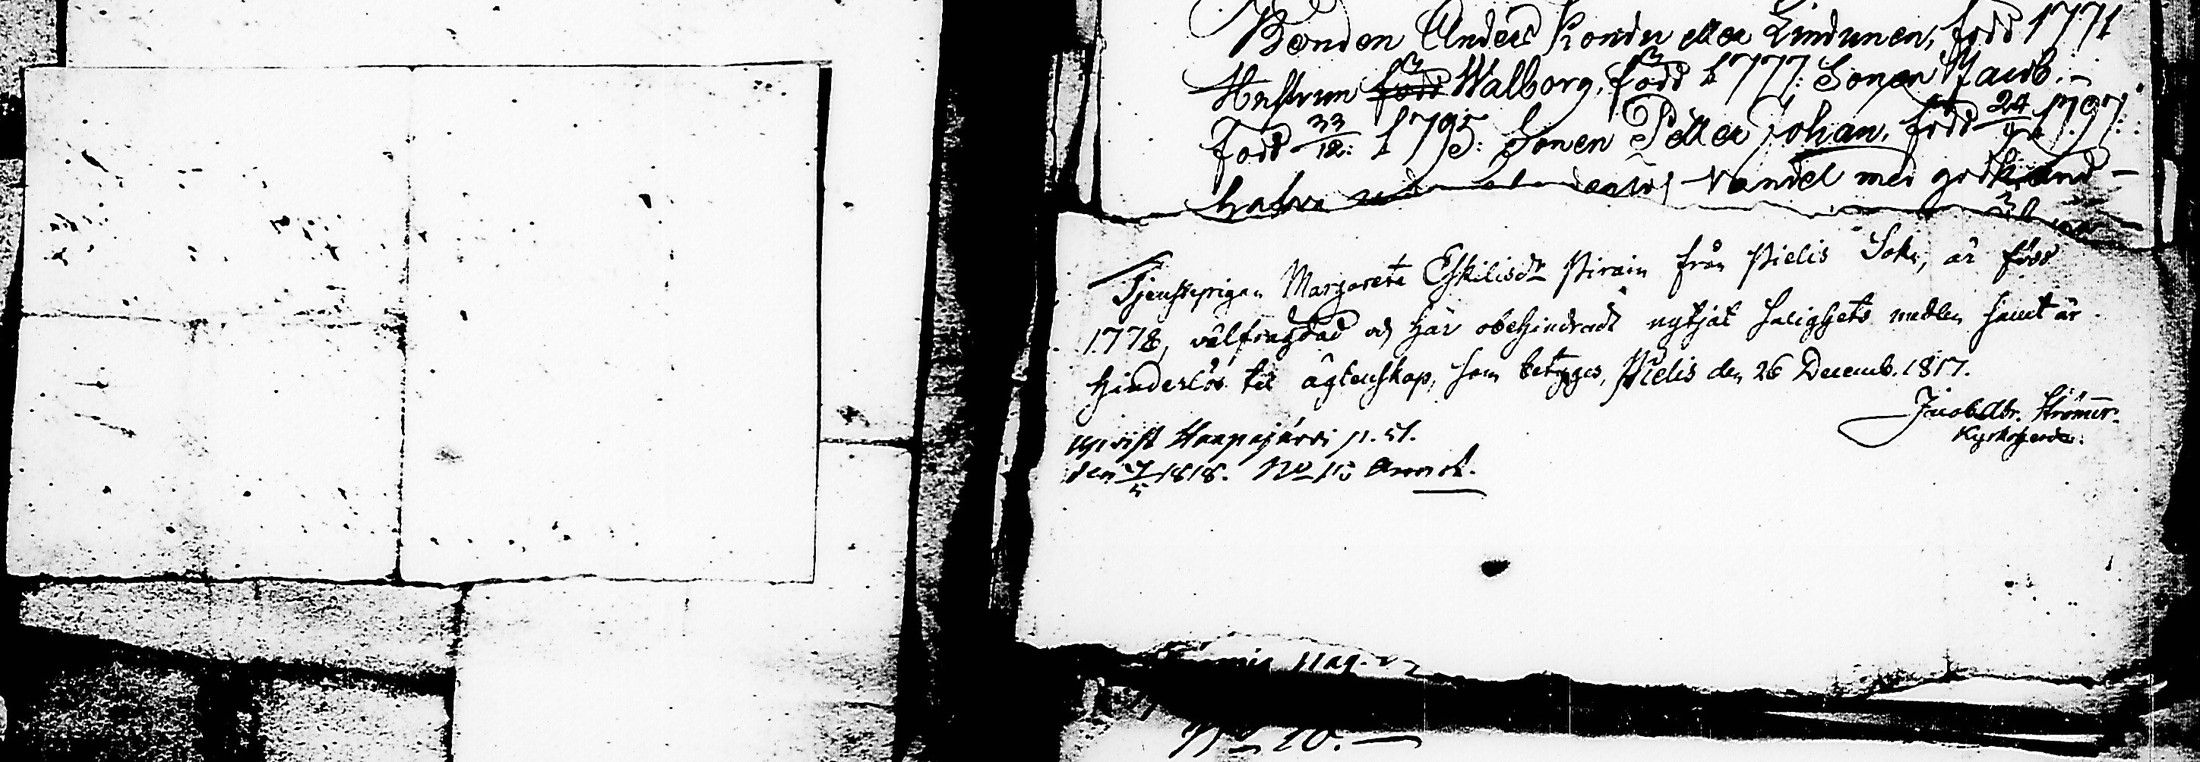 Bonden Anders Kondu eller Lindunen, född 1771
Hustrun född Walborg, född 1777: Sonen Jacob.
Född 23/12: 1795: Sonen Petter Johan, född 24/9 1797:
hafva vandel med
Tjenstepigan Margareta Eskilsdr Pirain från Pielis Sokn, är född
1778, välfrägdad och har obehindradt nytjat salighets medlen samt är
hinderlös til ägtenskap, som betygas, Pielis den 26 Decemb. 1817.
Jacob Abr. Strömer.
Kyrkoherde.
Uppvist Haapajärvi p. 51.
den /5 1818. No 15
No 20.